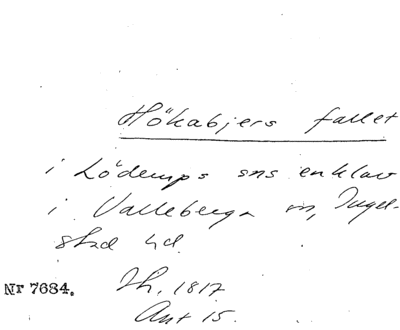 Hökabjers fallet
i Löderups sns enklav
i Valleberga sn, Ingel-
stad hd.
Nr 7684. Th. 1817
Ant 15.